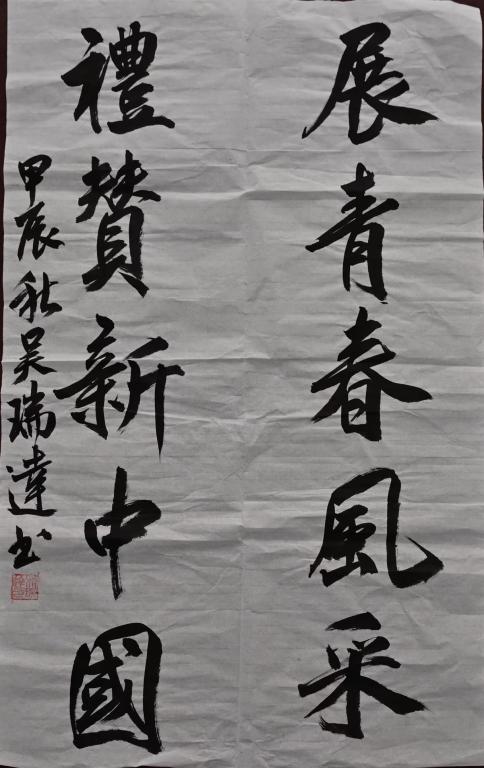 展青春風采
禮贊新中國
甲辰秋吴瑞達书